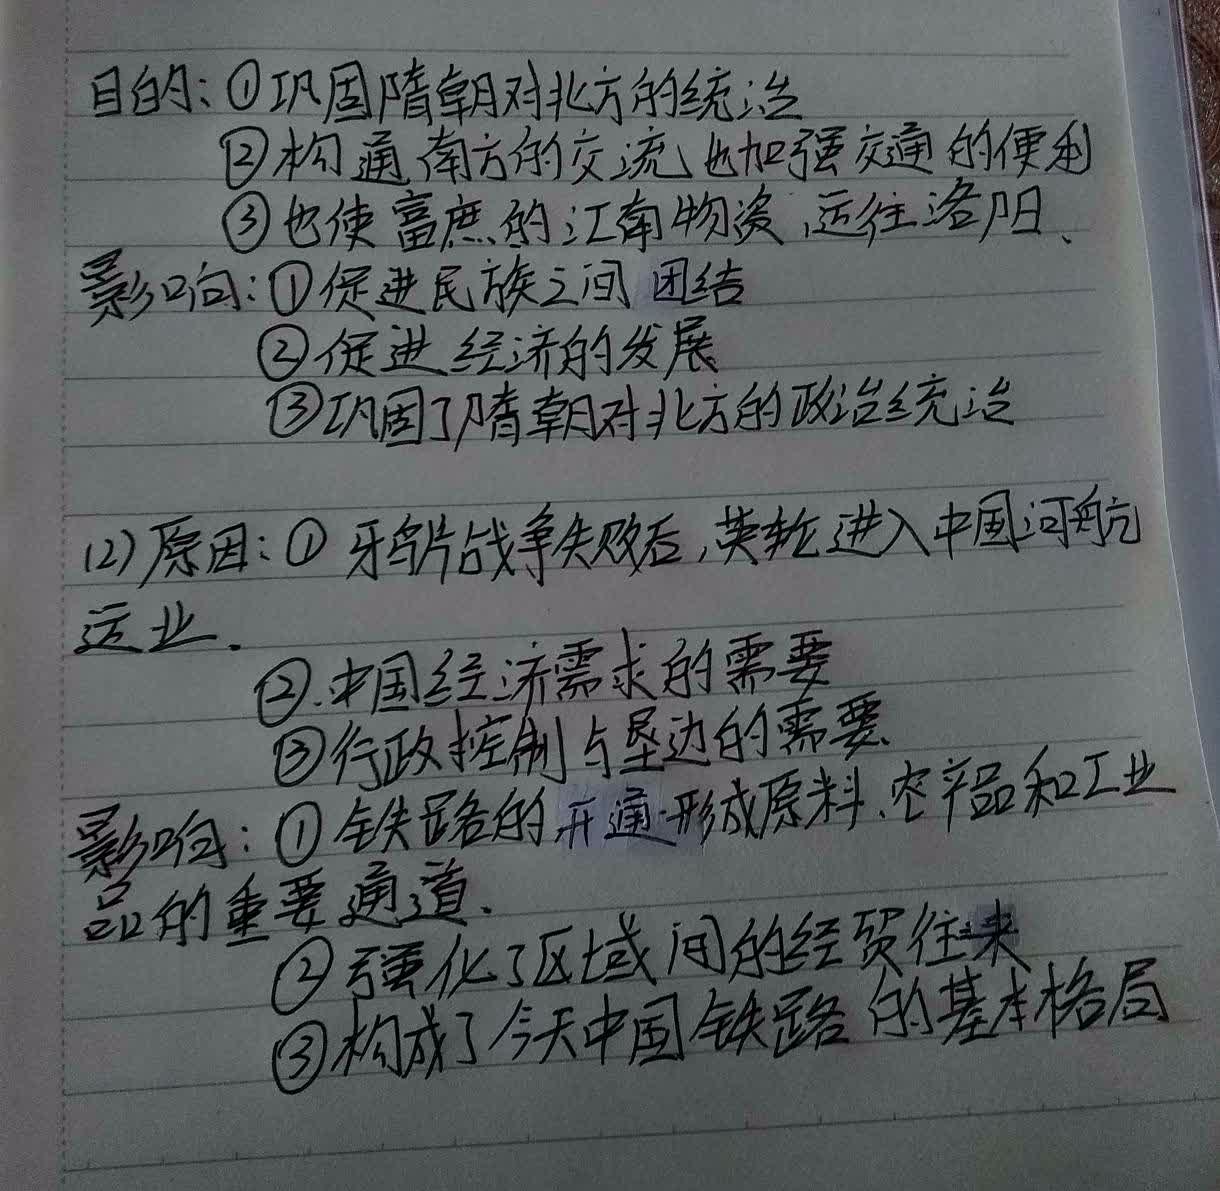 目的:①巩固隋朝对北方的统治
②构通南方的交流,也加强交通的便利
③也使富庶的江南物资,运往洛阳、
影响:①促进民族之间团结
②促进经济的发展
③巩固了隋朝对北方的政治统治
(2)原因:①牙鸟片战争失败后,英轮进入中国河航
运业.
②.中国经济需求的需要
③行政控制与垦边的需要.
影响:①铁路的开通形成原料、农产品和工业
品的重要通道.
②强化了区域间的经贸往来
③构成了今天中国铁路的基本格局